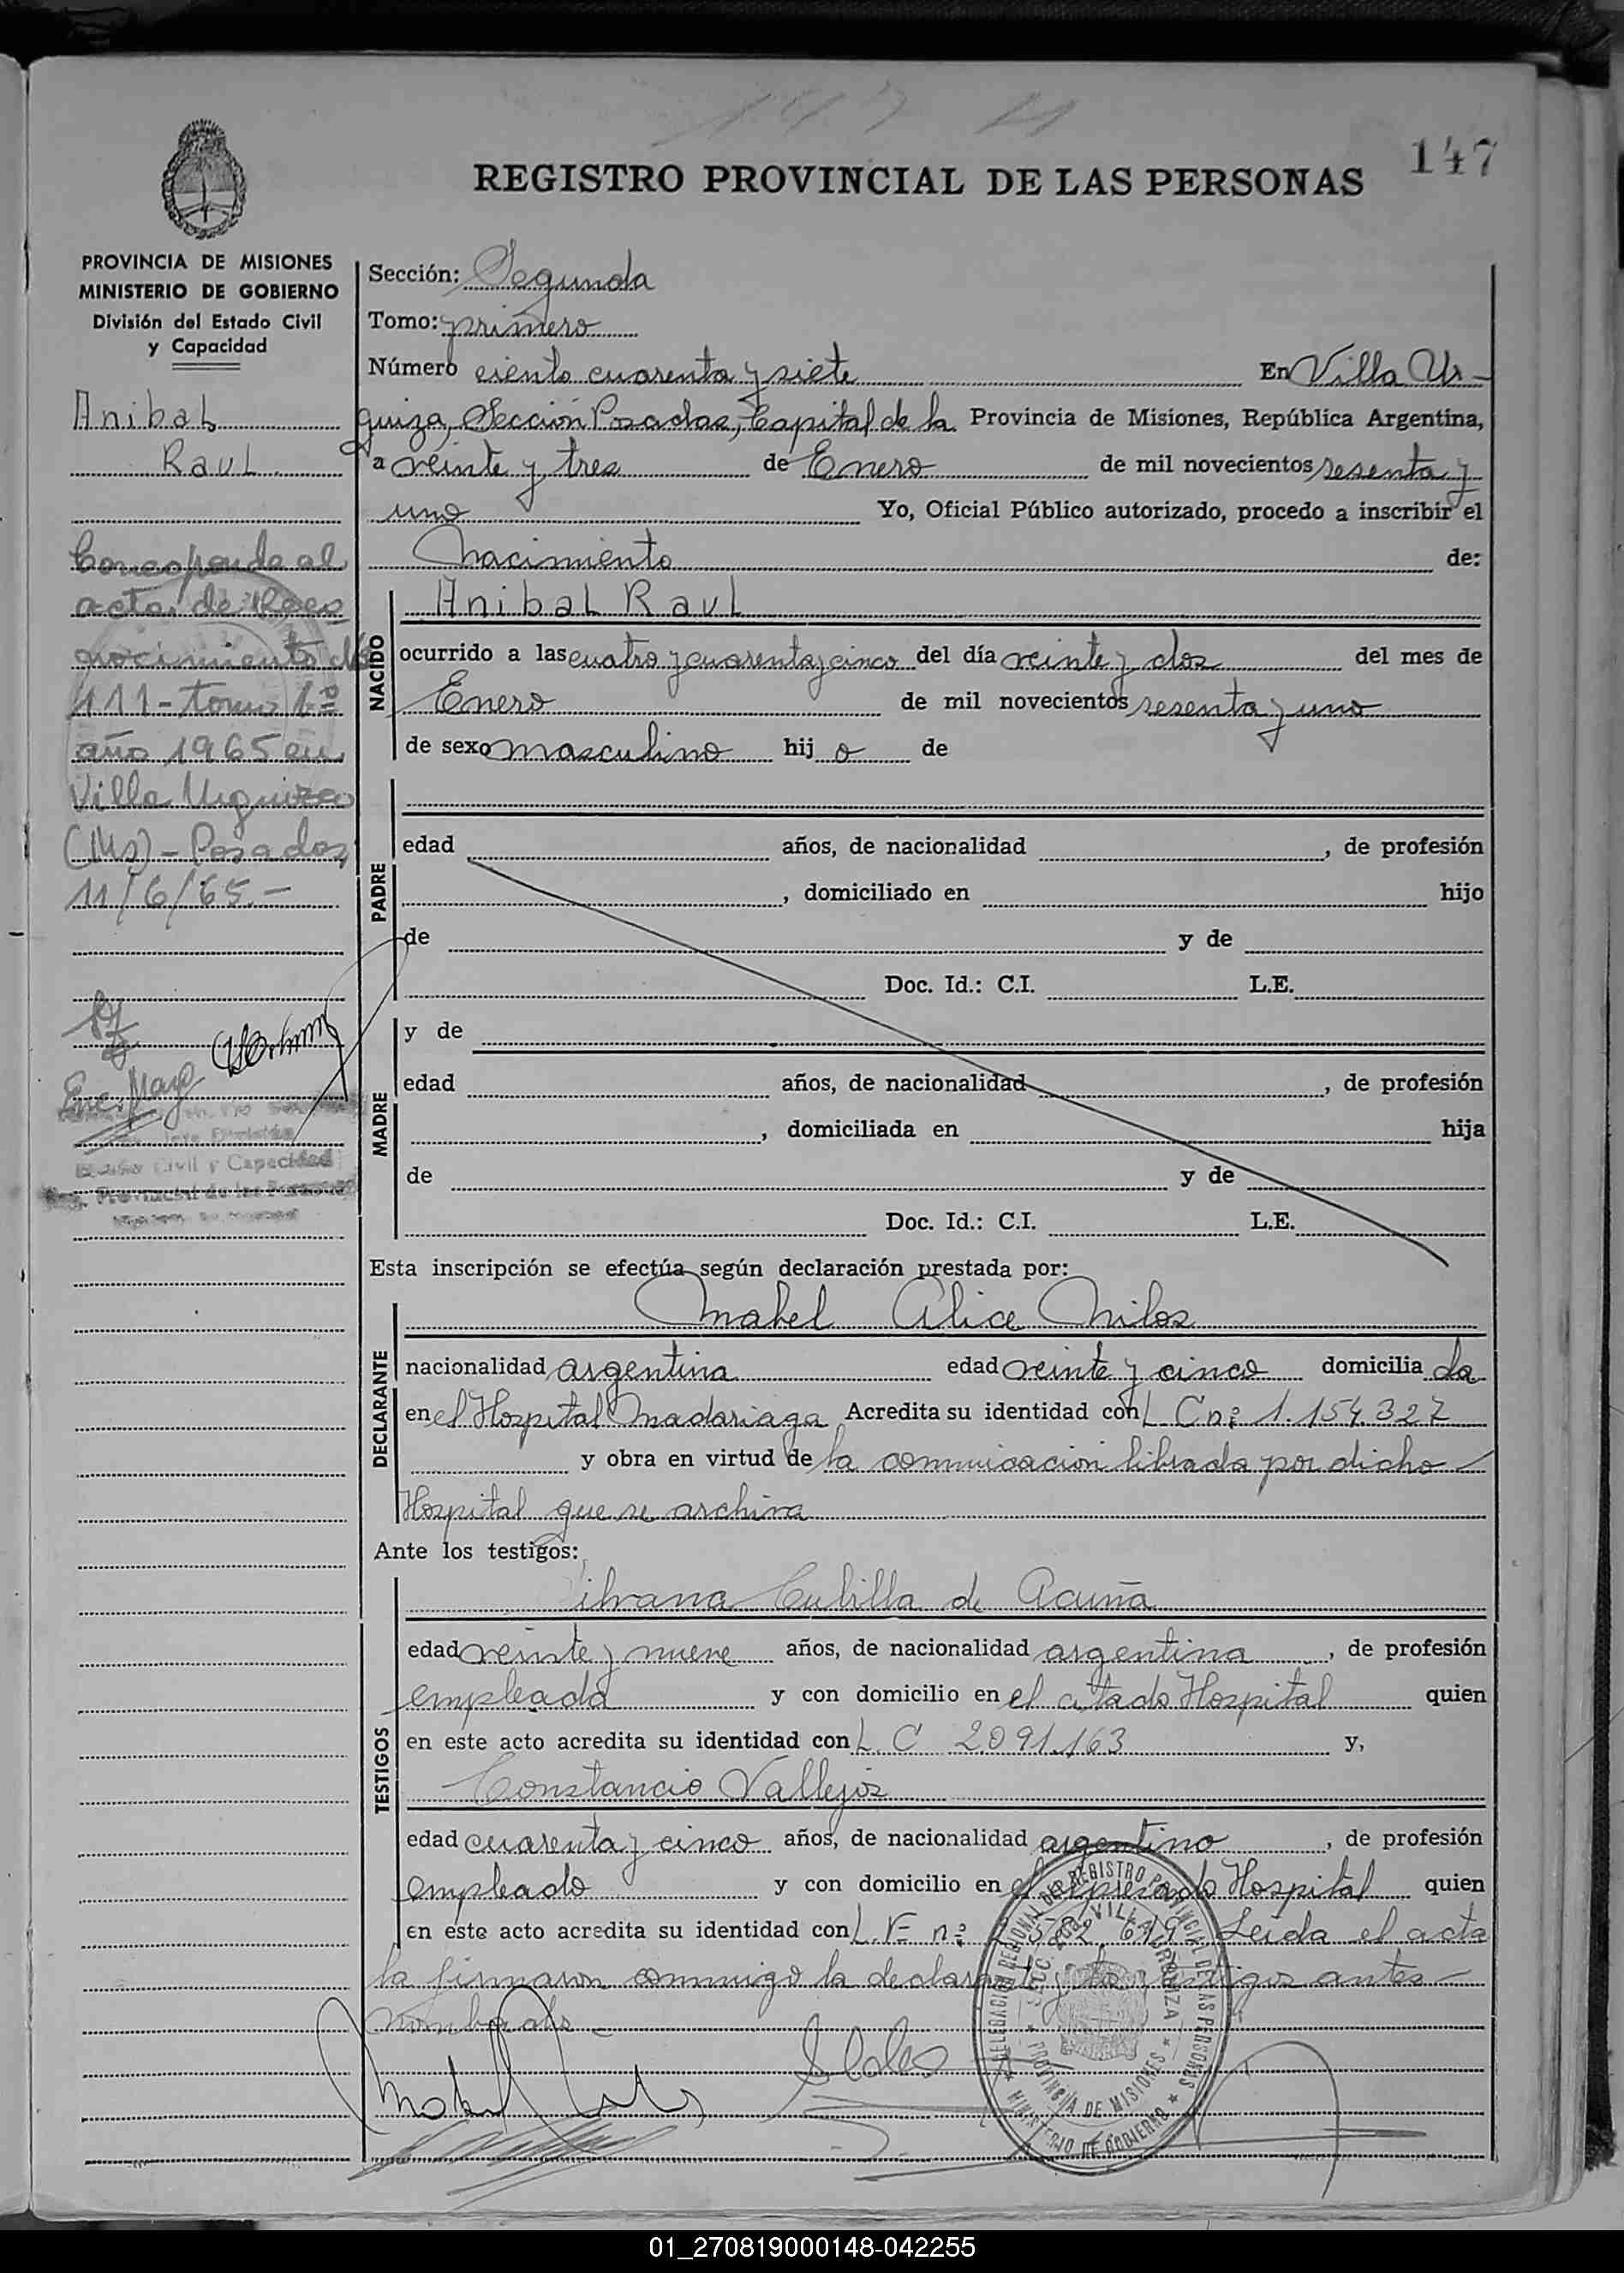 147
REGISTRO PROVINCIAL DE LAS PERSONAS
PROVINCIA DE MISIONES
MINISTERIO DE GOBIERNO
División del Estado Civil
y Capacidad
Anibal
Raul
Corresponde al
acta de Reco
nocimiento
111 - tomo 1º
año 1965 en
Villa Urquiza
(Ms) - Posadas,
11/6/65.-
Enc. Mayo
Estado Civil y Capacidad
Reg. Provincial de las Personas
Sección: Segunda
Tomo: primero
Número ciento cuarenta y siete En Villa Ur-
quiza, Sección Posadas, Capital de la Provincia de Misiones, República Argentina,
a veinte y tres de Enero de mil novecientos sesenta y
uno Yo, Oficial Público autorizado, procedo a inscribir el
Nacimiento de:
NACIDO
Anibal Raul
ocurrido a las cuatro y cuarenta y cinco del día veinte y dos del mes de
Enero de mil novecientos sesenta y uno
de sexo masculino hij o de
PADRE
edad años, de nacionalidad , de profesión
, domiciliado en hijo
de y de
Doc. Id.: C.I. L.E.
MADRE
y de
edad años, de nacionalidad , de profesión
, domiciliada en hija
de y de
Doc. Id.: C.I. L.E.
Esta inscripción se efectúa según declaración prestada por:
DECLARANTE
Mabel Alice Milos
nacionalidad argentina edad veinte y cinco domicilia da
en el Hospital Madariaga Acredita su identidad con L C nº 1.154.327
y obra en virtud de la comunicacion librada por dicho
Hospital que se archiva
Ante los testigos:
TESTIGOS
Cubilla de Acuña
edad veinte y nueve años, de nacionalidad argentina , de profesión
empleada y con domicilio en el citado Hospital quien
en este acto acredita su identidad con L. C 2.091.163 y,
Constancio Vallejos
edad cuarenta y cinco años, de nacionalidad argentino , de profesión
empleado y con domicilio en el Hospital quien
en este acto acredita su identidad con L. E nº Leida el acta
la firmaron conmigo la declarante y los testigos antes
nombrados
DELEGACION REGIONAL DEL REGISTRO PROVINCIAL DE LAS PERSONAS
MINISTERIO DE GOBIERNO
SECC. VILLA URQUIZA
PROVINCIA DE MISIONES
01_270819000148-042255